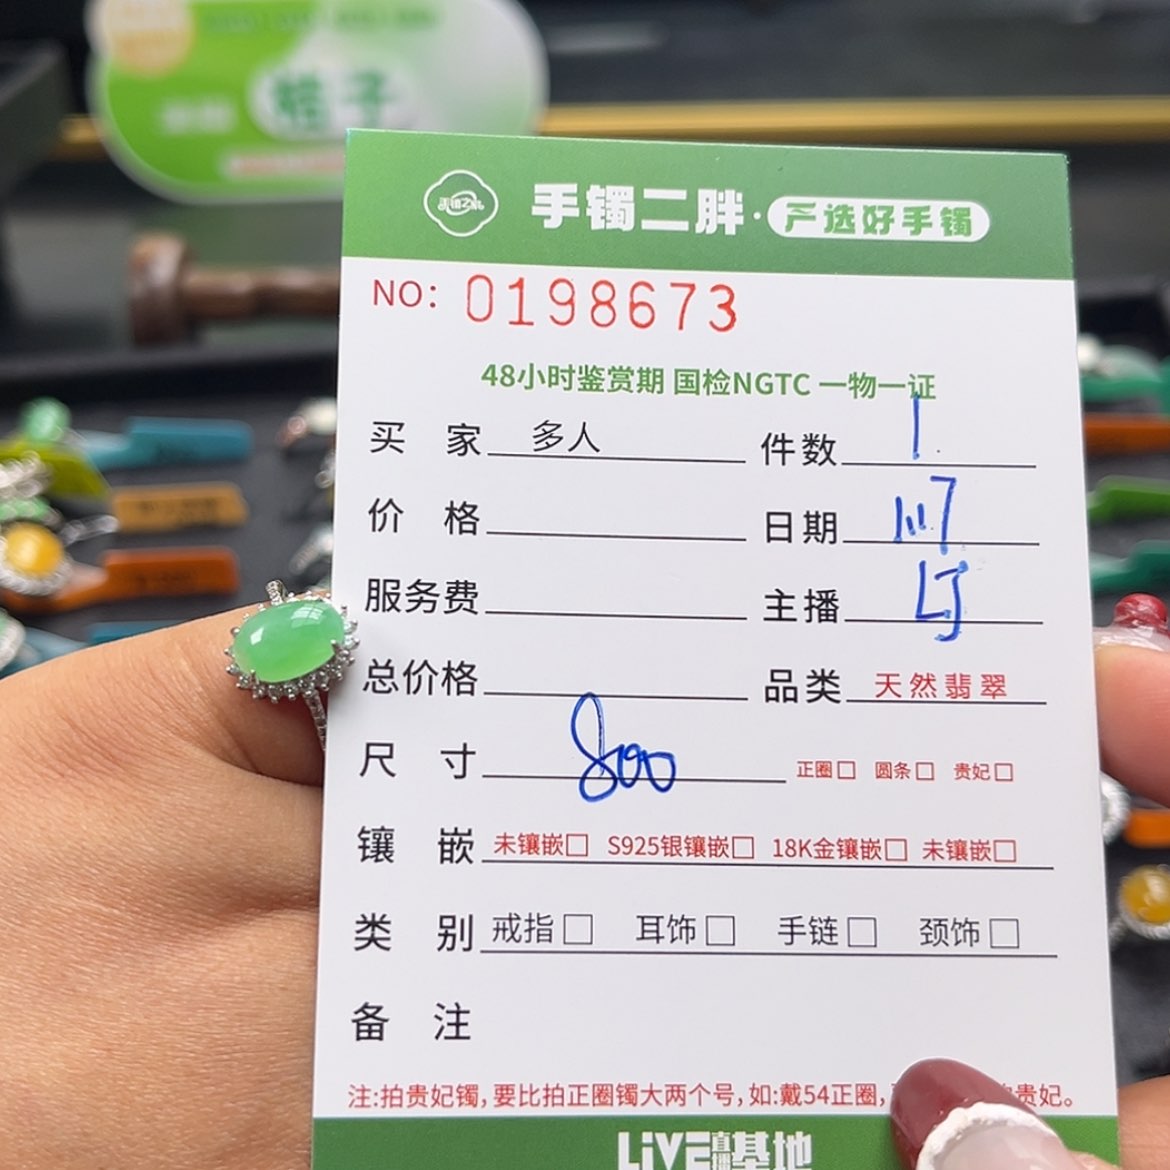 桔子
手镯二胖·严选好手镯
NO: 0198673
48小时鉴赏期 国检NGTC 一物一证
买 家 多人 件数 1
价 格 日期
服务费 主播
总价格 品类 天然翡翠
尺 寸 800 正圈□ 圆条□ 贵妃□
镶 嵌 未镶嵌□ S925银镶嵌□ 18K金镶嵌□ 未镶嵌□
类 别 戒指□ 耳饰□ 手链□ 颈饰□
备 注
注:拍贵妃镯,要比拍正圈镯大两个号,如:戴54正圈, 贵妃。
LiVE直播基地